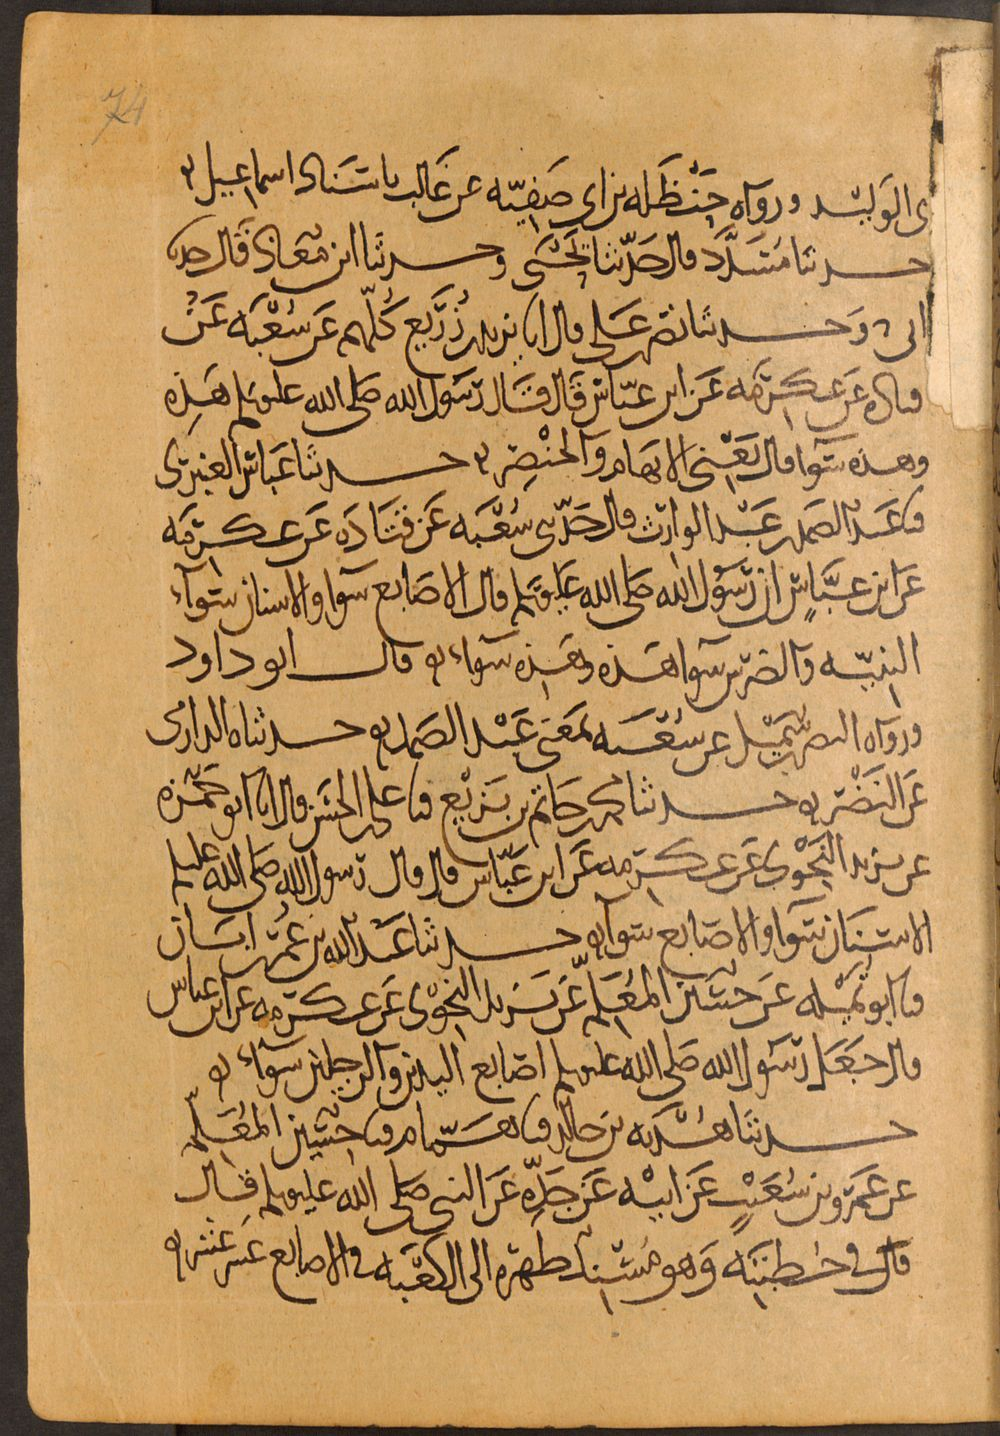 74
ى الوليد ورواه حنظله بن ابى صفيه عن غالب باسناد اسماعيل
حدثنا مسدد قال حدثنا يحيى وحدثنا ابن معاذ قال حدثنا
ابى وحدثنا نصر بن على قال انا يزيد بن زريع كلهم عن شعبه عن
قتاده عن عكرمه عن ابن عباس قال قال رسول الله صلى الله عليه وسلم هذه
وهذه سوا قال يعنى الابهام والخنصر حدثنا عباس العنبرى
نا عبد الصمد بن عبد الوارث قال حدثنى شعبه عن قتاده عن عكرمه
عن ابن عباس ان رسول الله صلى الله عليه وسلم قال الاصابع سوا والاسنان سواء
الثنيه والضرس سوا هذه وهذه سواء قال ابو داود
ورواه النضر بن شميل عن شعبه بمعنى عبد الصمد حدثناه الدارمى
عن النضر حدثنا محمد بن حاتم بن بزيع نا على بن الحسن قال انا ابو حمزه
عن يزيد النحوى عن عكرمه عن ابن عباس قال قال رسول الله صلى الله عليه وسلم
الاسنان سوا والاصابع سوا حدثنا عبد الله بن عمر بن ابان
نا ابو تميله عن حسين المعلم عن يزيد النحوى عن عكرمه عن ابن عباس
قال جعل رسول الله صلى الله عليه وسلم اصابع اليدين والرجلين سواء
حدثنا هدبه بن خالد نا همام نا حسين المعلم
عن عمرو بن شعيب عن ابيه عن جده عن النبى صلى الله عليه وسلم قال
قال فى خطبته وهو مسند ظهره الى الكعبه فى الاصابع عشر عشر